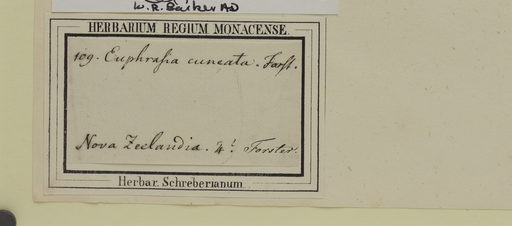 W.R. Barker AD
HERBARIUM REGIUM MONACENSE.
109. Euphrasia cuneata. Forst.
Nova Zeelandia. Forster.
Herbar. Schreberianum.